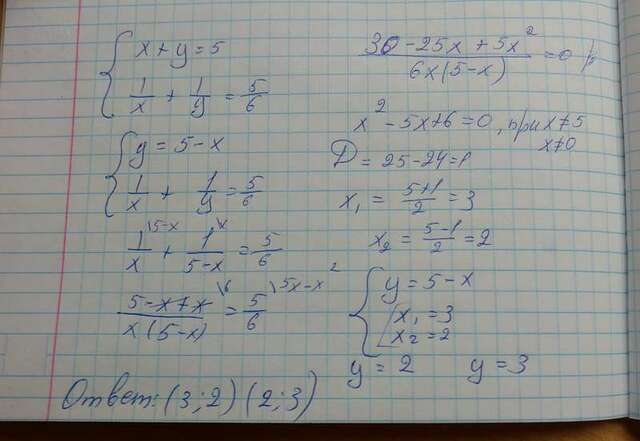 { x + y = 5
1/x + 1/y = 5/6
{ y = 5 - x
1/x + 1/y = 5/6
1/x \5-x + 1/(5-x) \x = 5/6
(5 - x + x)/(x(5-x)) \6 = 5/6 \5x-x²
(30 - 25x + 5x²)/(6x(5-x)) = 0
x² - 5x + 6 = 0, при x ≠ 5
x ≠ 0
D = 25 - 24 = 1
x₁ = (5+1)/2 = 3
x₂ = (5-1)/2 = 2
{ y = 5 - x
[ x₁ = 3
x₂ = 2
y = 2 y = 3
Ответ: (3; 2) (2; 3)